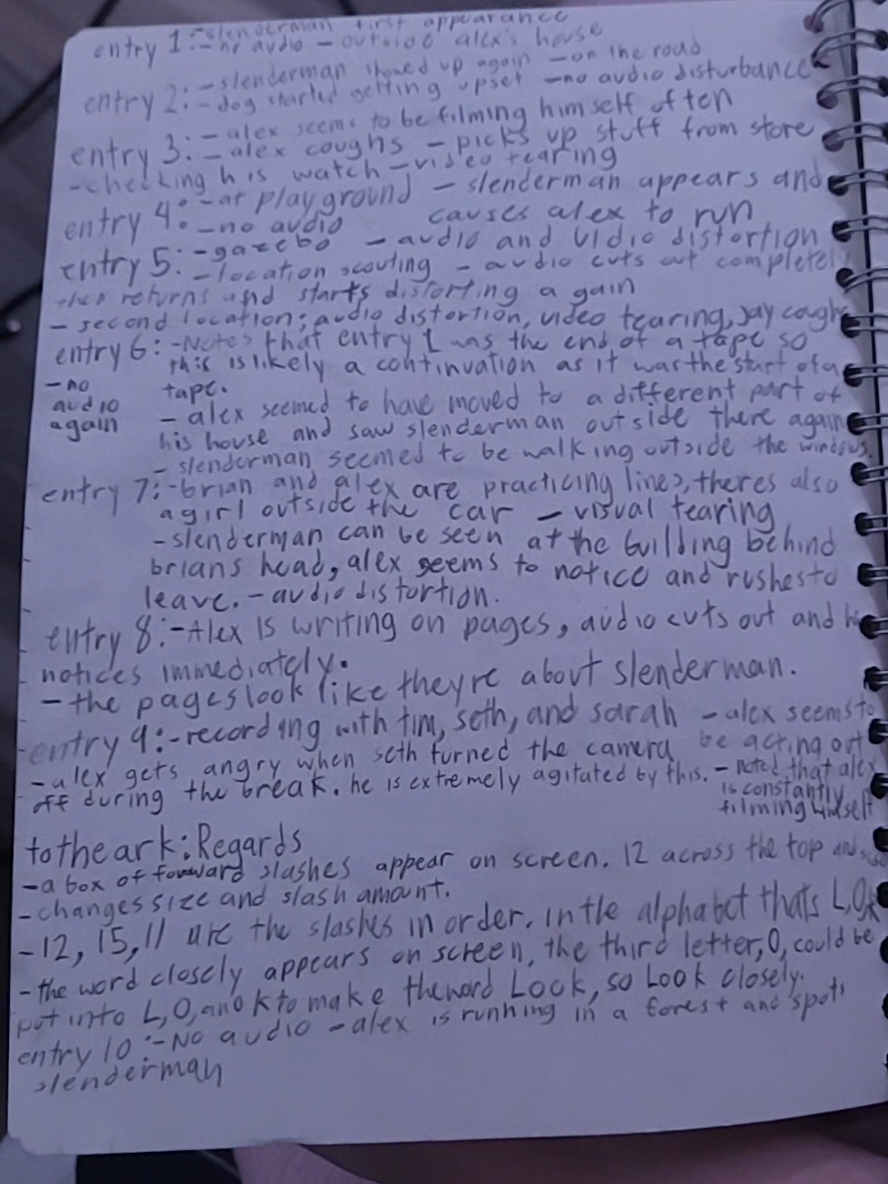 entry 1:-slenderman first appearance
-no audio - outside alex's house
entry 2:-slenderman showed up again -on the road
-dog started getting upset -no audio disturbance
entry 3:-alex seems to be filming himself often
-alex coughs - picks up stuff from store
-checking his watch -video tearing
entry 4:-at playground - slenderman appears and
-no audio causes alex to run
entry 5:-gazebo - audio and vidio distortion
-location scouting - audio cuts out completely
then returns and starts distorting again
- second location; audio distortion, video tearing, jay coughs
entry 6:-Notes that entry 1 was the end of a tape so
this is likely a continuation as it was the start of a
tape.
-no
audio
again
- alex seemed to have moved to a different part of
his house and saw slenderman outside there again
- slenderman seemed to be walking outside the windows.
entry 7:-brian and alex are practicing lines, theres also
a girl outside the car - visual tearing
-slenderman can be seen at the building behind
brians head, alex seems to notice and rushes to
leave. -audio distortion.
entry 8:-Alex is writing on pages, audio cuts out and he
notices immediately.
- the pages look like theyre about slenderman.
entry 9:-recording with tim, seth, and sarah - alex seems to
be acting out
-alex gets angry when seth turned the camera
off during the break. he is extremely agitated by this. - noted that alex
is constantly
filming himself
totheark:Regards
-a box of forward slashes appear on screen. 12 across the top and
-changes size and slash amount.
-12, 15, 11 are the slashes in order. in the alphabet thats L,O,K
- the word closely appears on screen, the third letter, O, could be
put into L, O, and K to make the word Look, so Look closely.
entry 10:-No audio -alex is running in a forest and spots
slenderman